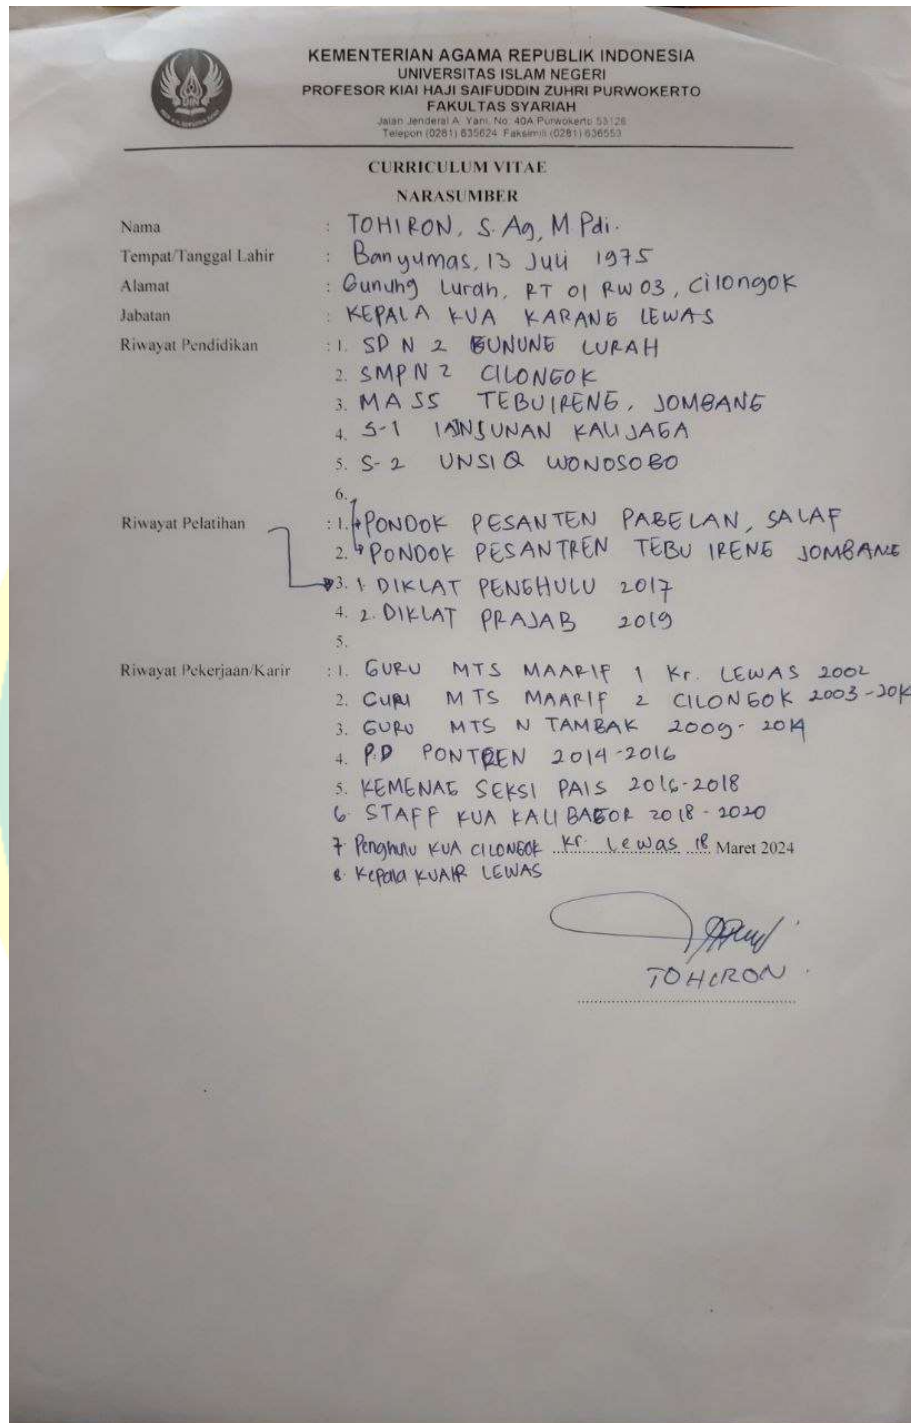 KEMENTERIAN AGAMA REPUBLIK INDONESIA
UNIVERSITAS ISLAM NEGERI
PROFESOR KIAI HAJI SAIFUDDIN ZUHRI PURWOKERTO
FAKULTAS SYARIAH
Jalan Jenderal A. Yani, No. 40A Purwokerto 53126
Telepon (0281) 635624 Faksimili (0281) 636553
CURRICULUM VITAE
NARASUMBER
Nama : TOHIRON, S. Ag, M Pdi.
Tempat/Tanggal Lahir : Banyumas, 13 Juli 1975
Alamat : Gunung Lurah, RT 01 RW 03, Cilongok
Jabatan : KEPALA KUA KARANG LEWAS
Riwayat Pendidikan : 1. SD N 2 GUNUNG LURAH
2. SMP N 2 CILONGOK
3. MASS TEBUIRENG, JOMBANG
4. S-1 IAIN SUNAN KALIJAGA
5. S-2 UNSIQ WONOSOBO
6.
Riwayat Pelatihan : 1. PONDOK PESANTEN PABELAN, SALAF
2. PONDOK PESANTREN TEBU IRENG JOMBANG
3. 1. DIKLAT PENGHULU 2017
4. 2. DIKLAT PRAJAB 2019
5.
Riwayat Pekerjaan/Karir : 1. GURU MTS MAARIF 1 Kr. LEWAS 2002
2. GURU MTS MAARIF 2 CILONGOK 2003-
3. GURU MTS N TAMBAK 2009-2014
4. P.D PONTREN 2014-2016
5. KEMENAG SEKSI PAIS 2016-2018
6. STAFF KUA KALIBAGOR 2018-2020
7. Penghulu KUA CILONGOK Kr. Lewas 18 Maret 2024
8. Kepala KUA LEWAS
TOHIRON